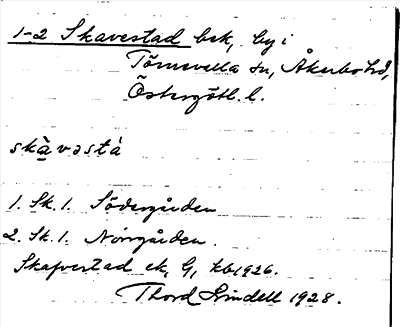 1-2 Skavestad bsk, by i
Törnevalla sn, Åkerbo hd,
Östergötl. l.
skàvəstá
1. Sk. 1. Södergården
2. Sk. 1. Norrgården.
Skafvestad ek, G, kb 1926.
Thord Lindell 1928.